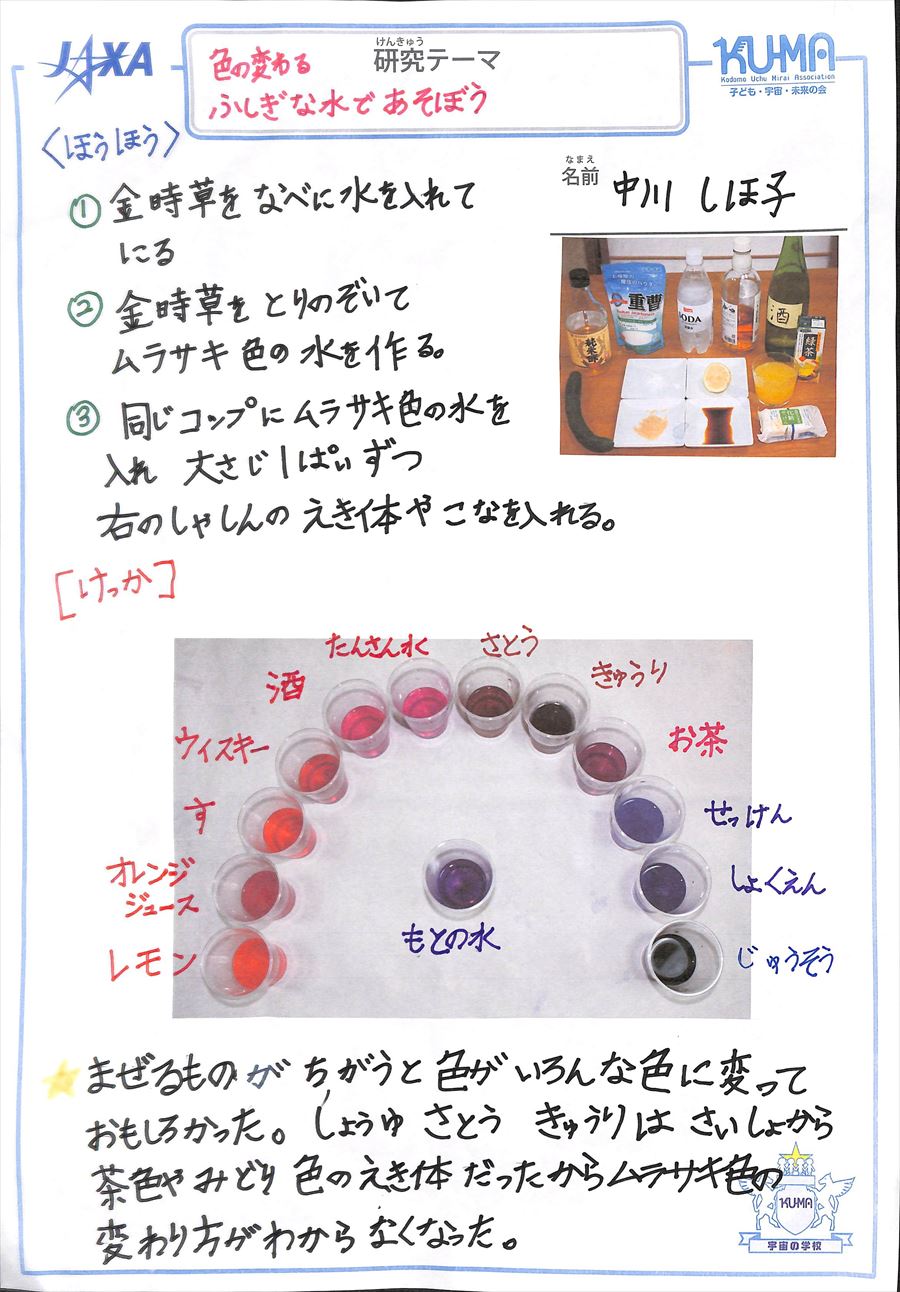 JAXA
けんきゅう
研究テーマ
色の変わる
ふしぎな水であそぼう
KU-MA
Kodomo Uchu Mirai Association
子ども・宇宙・未来の会
<ほうほう>
なまえ
名前
中川 しほ子
① 金時草を なべに水を入れて
にる
② 金時草を とりのぞいて
ムラサキ色の 水を作る。
③ 同じコップにムラサキ色の水を
入れ 大さじ1ぱいずつ
右のしゃしんの えき体や こなを入れる。
重曹
SODA
純米酢
酒
緑茶
[けっか]
たんさん水
さとう
酒
きゅうり
ウィスキー
お茶
す
せっけん
オレンジ
ジュース
しょくえん
もとの水
レモン
じゅうそう
まぜるものが ちがうと 色が いろんな色に変って
おもしろかった。しょうゆ さとう きゅうりは さいしょから
茶色や みどり 色のえき体 だったからムラサキ色の
変わり方がわから なくなった。
KU-MA
宇宙の学校